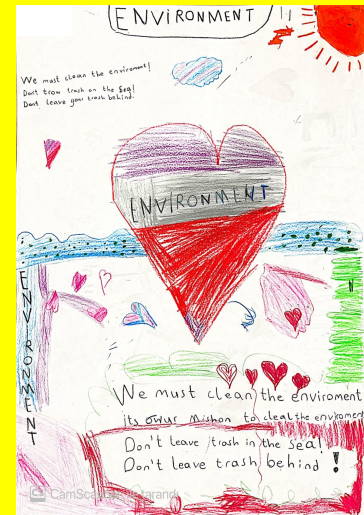 ENVIRONMENT !!
We must clean the enviroment!
Dont trow trash on the Sea!
Dont leave your trash behind.
ENVIRONMENT
ENVIRONMENT
We must clean the enviroment
its owur Mishon to cleal the enviroment
Don't leave trash in the Sea!
Don't leave trash behind !
CamSca